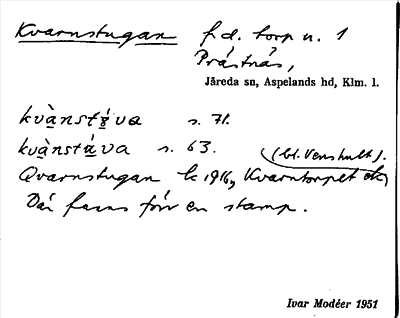 Kvarnstugan f.d. torp u. 1
Prästnäs,
Järeda sn, Aspelands hd, Klm. l.
kvànstúva s. 71.
kvànstúva s. 63.
(bl. Venshult).
Qvarnstugan k 1916, Kvarntorpet ek,
Där fanns förr en stamp.
Ivar Modéer 1951